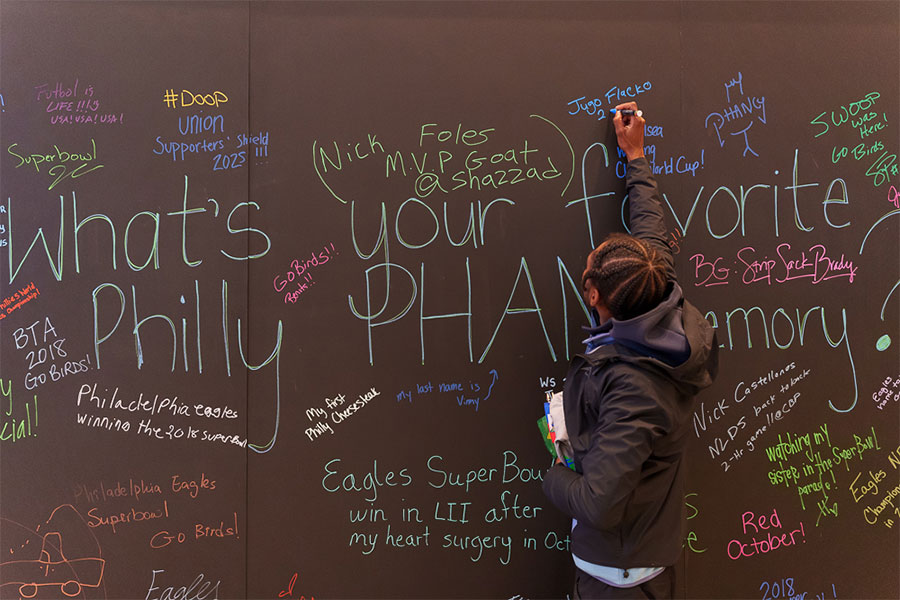 What's your favorite
Philly PHAN memory?
Futbol is
LIFE!!!
USA! USA! USA!
#DOOP
UNION
Supporters' Shield
2025 !!!
Superbowl
(Nick Foles
M.V.P Goat
@shazzad)
Jugo Flacko
World Cup!
my
PHANCY
SWOOP
was
Here!
GO Birds
Go Birds!!
BG - Strip Sack Brady
World
Championship!
BTA
2018
GO BIRDS!
Philadelphia eagles
winning the 2018 superbowl
My first
Philly Cheesesteak
my last name is
Vinny
Ws
Nick Castellanos
NLDS back to back
2-Hr game!! @ CBP
Eagles
watching my
sister in the Super Bowl
parade!
Eagles
Champion
Red
October!
Philadelphia Eagles
Superbowl
GO Birds!
Eagles SuperBow
win in LII after
my heart surgery in Oct
Eagles
2018